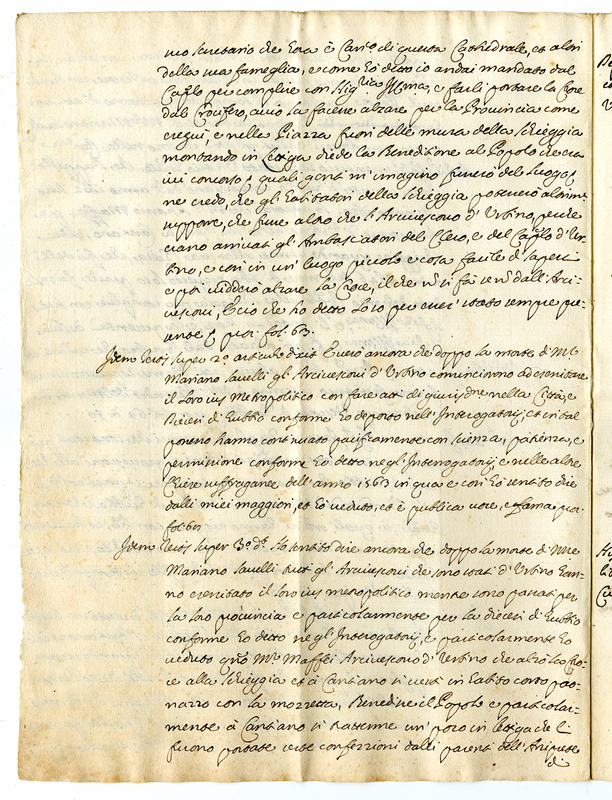 suo secretario che era è Can.co di questa Cathedrale, et altri
della sua fameglia, e come hò detto io andai mandato dal
Cap.lo per complire con Sig.ria Ill.ma, e farli portare la Croce
dal Crocifero, acciò la facesse alzare per la Provincia come
eseguì, e nelle Piazza fuori delle mura della Scheggia
montando in Lettiga diede la Beneditione al Popolo che era
ivi concorso, quali genti m'imagino fussero del luogo,
ne credo, che gli habitatori della Scheggia potessero altrim.
supporre, che fusse altro che l'Arcivescovo d'Urbino, perche
erano arrivati gli Ambasciatori del Clero, e del Cap.lo d'Ur-
bino, e così in un' luogo piccolo e cosa facile à sapersi
e poi viddero alzare la Croce, il che n si fà se n dall'Arci-
vescovi, e ciò che ho detto lo so per esser' stato sempre pre-
sente pur fol. 63.
Idem Testis super 2.o articulo dixit È vero ancora che doppo la morte di M.r
Mariano Savelli gli Arcivescovi d'Urbino cominciorono ad esercitare
il loro ius Metropolitico con fare atti di giurisd.ne nella Città, e
Diocesi di Gubbio conforme hò deposto nell'Interogatorij, et in tal
possesso hanno continuato pacificamente con scienza, patienza, e
permissione conforme hò detto negl'Interrogatorij, e nelle altre
Chiese suffraganee dell'anno 1563 in qua e così hò sentito dire
dalli miei maggiori, et hò veduto, et è publica voce, e fama pur
fol. 60
Idem Testis super 3.o d.t hò sentito dire ancora che doppo la morte di M.re
Mariano Savelli tutti gli Arcivescovi che sono stati d'Urbino han-
no esercitato il loro ius metropolitico mentre sono passati per
la loro provincia e particolarmente per la diocesi di Gubbio
conforme hò detto negl'Interogatorij, e particolarmente hò
veduto q.do M.r Maffei Arcivescovo d'Urbino che alzò la Cro-
ce alla Scheggia et à Cantiano si vestì in habito corto pao-
nazzo con la mozzetta, Benedisse il Popolo e particolar-
mente à Cantiano si trattenne un' poco in lettiga che li
furono portate certe confezzioni dalli parenti dell'Arciprete
di